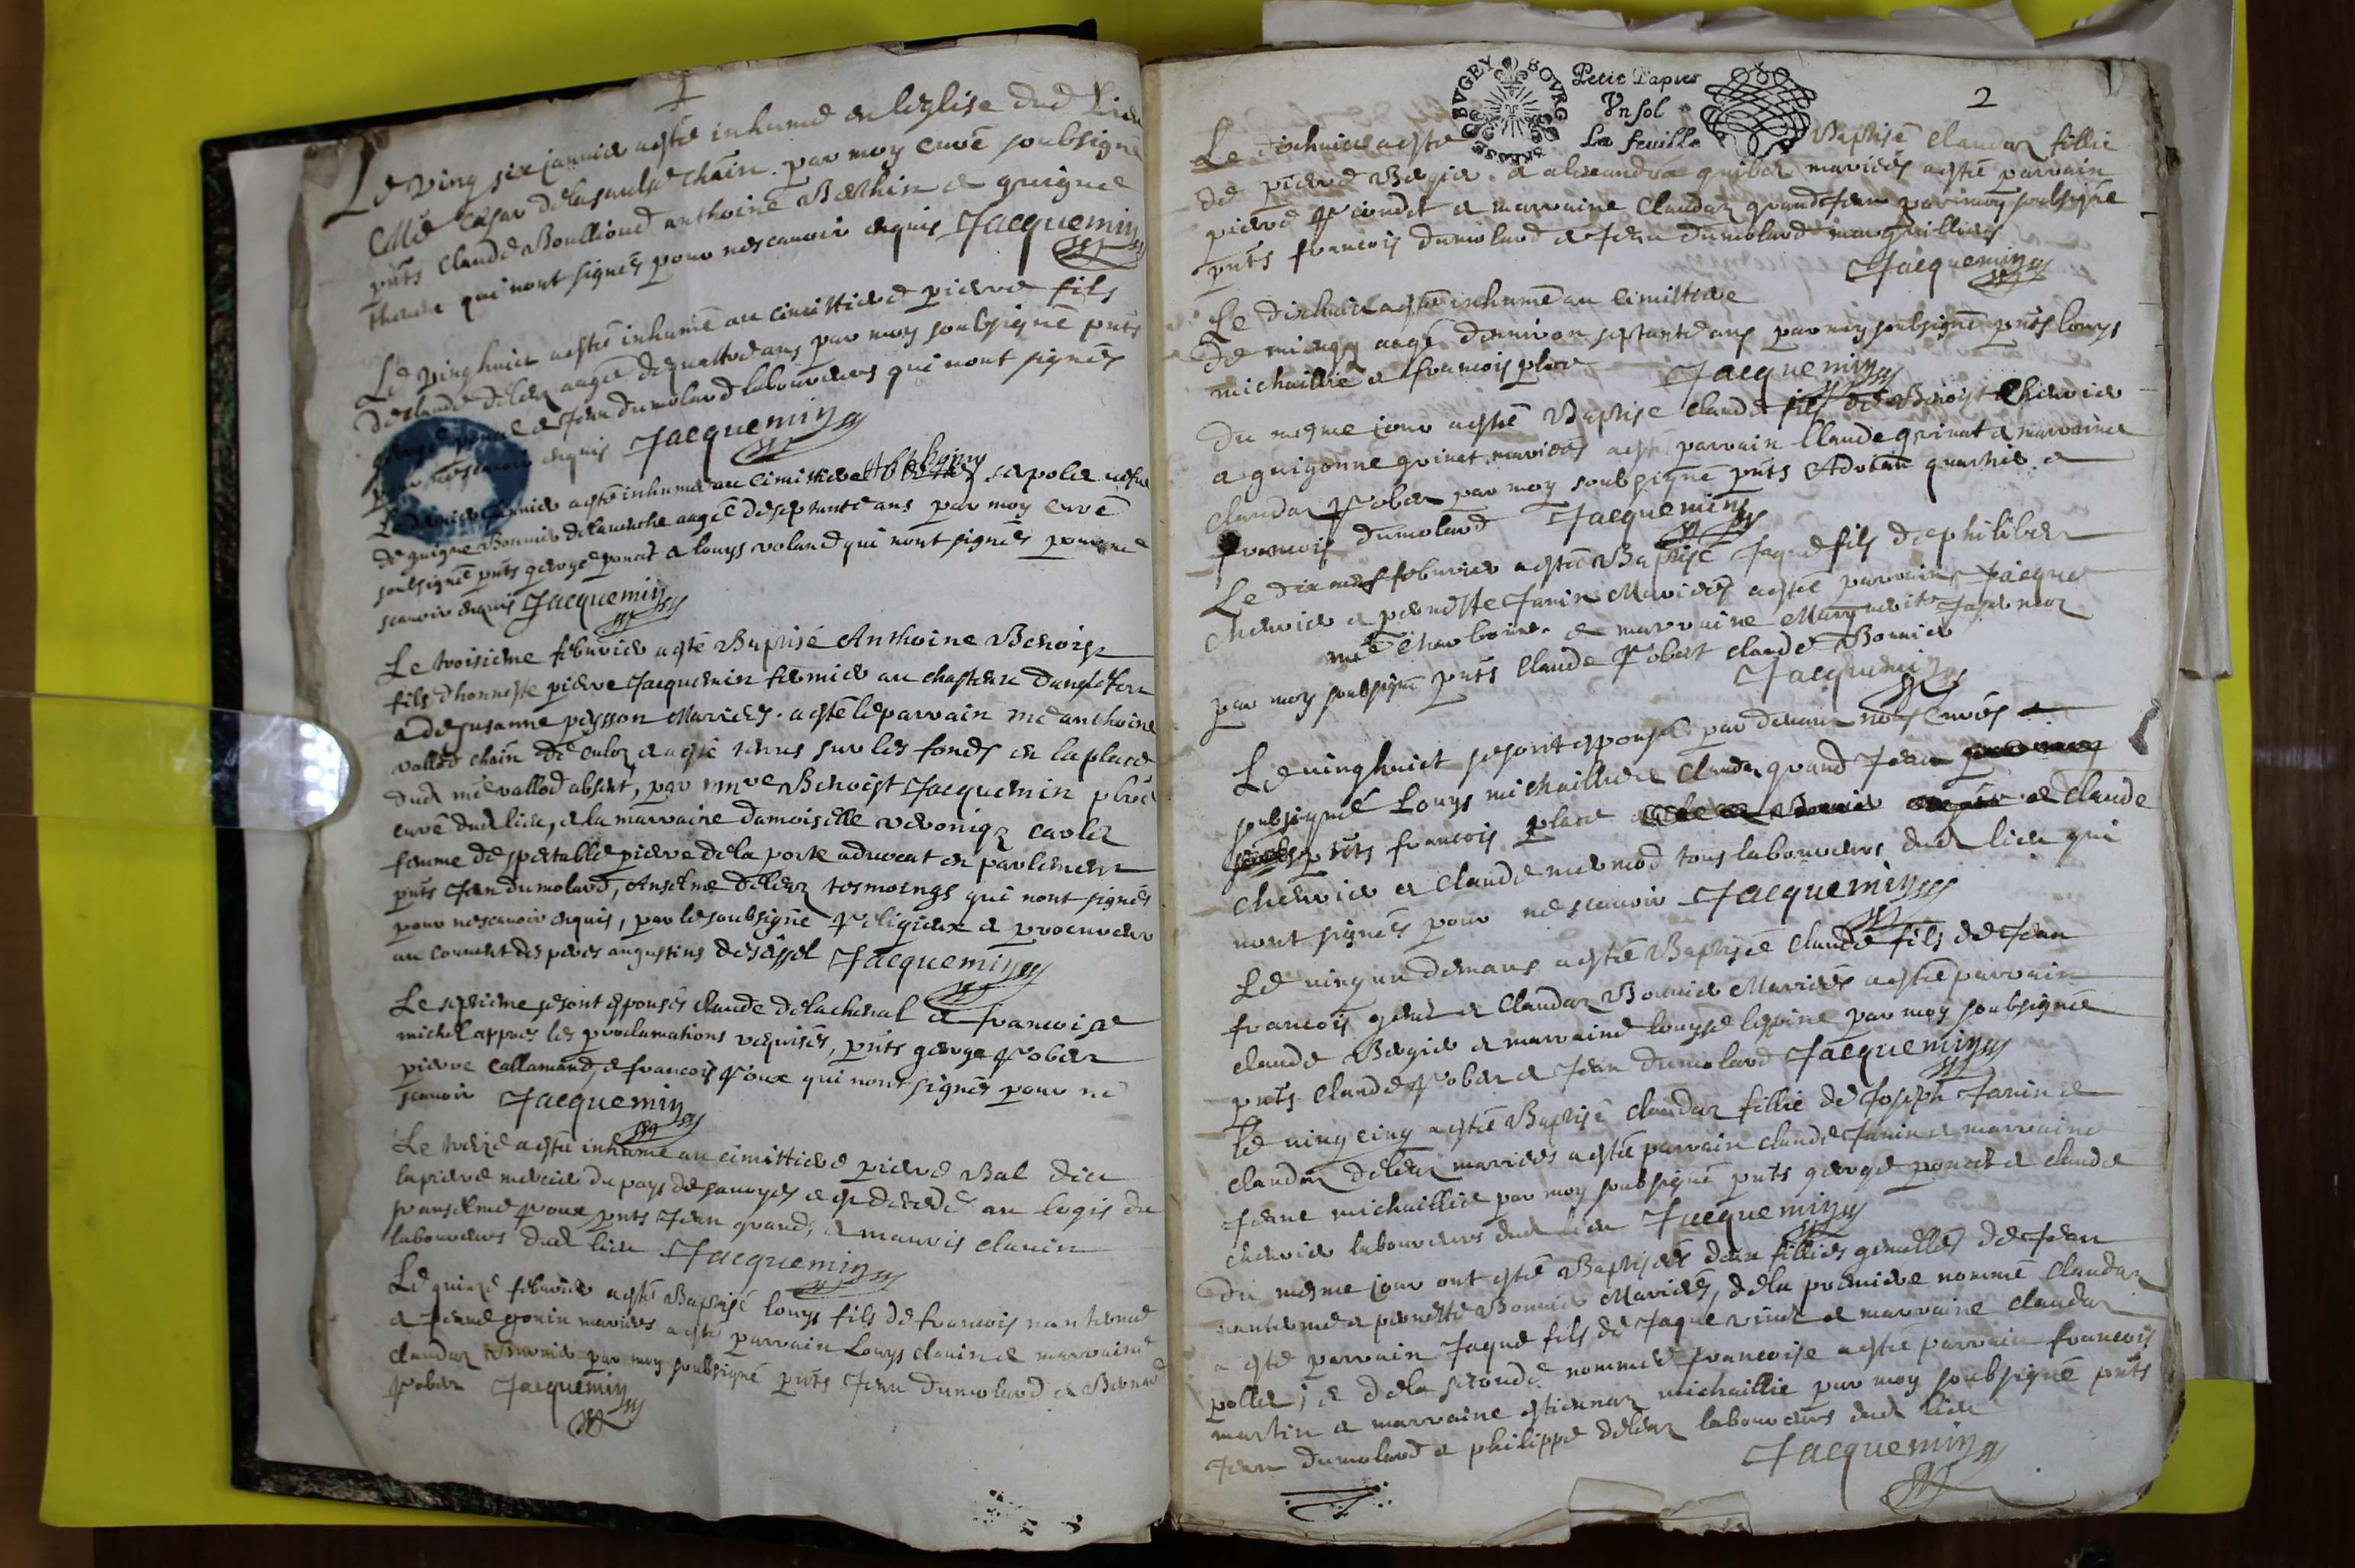 Le ving six janvier a esté inhumé en leglise dud Lieu
Mre Cesar delasaulse chãin. par moy curé soubsigné
pñts Claude Boulliond anthoine Berthin et guigne
qui nont signés pour nescavoir enquis Jacquemin
Le vinghuict a esté inhumé au cimittiere pierre fils
declaude deler aagée dequattre ans par moy soubsigné pñts
george poncet et Jean dumolard laboureurs qui nont signés
pour nescavoir enquis Jacquemin
Le dernier Janvier a esté inhumé au cimittiere
de guigne Bonnier aagée deseptante ans par moy curé
soubsigné pñts george poncet et louys voland qui nont signés pour ne
scavoir enquis Jacquemin
Le troisieme febvrier a esté Baptisé Anthoine Benoist
fils dhonneste pierre Jacquemin fermier au chasteau
et de susanne peysson Mariés. a esté le parrain mre anthoine
vallod chãin de et a esté tenus sur les fonds en la place
dud mre vallod absent, par mre Benoist Jacquemin pbre
curé dud lieu, et la marraine damoiselle
femme de spectable pierre dela poste advocat en parlement
pñts Jean dumolard, Anselme deler tesmoings qui nont signés
pour nescavoir enquis, par le soubsigné Religieux et procureur
au couvent des peres augustins deseyssel Jacquemin
Le septieme se sont espousés claude delachenal et francoise
michel appres les proclamations requises, pñts george Rober
pierre Callamand, et francois Roux qui nont signés pour ne
scavoir Jacquemin
Le treize a esté inhumé au cimittiere pierre Bal dict
lapierre mercier du pays desavoye et est decedé au logis de
Roux pñts Jean grand, et mauris clavin
laboureurs dud lieu Jacquemin
Le quinze febvrier a esté Baptisé louys fils de francois nanterme
et Jeanne gonin mariés a esté parrain Louys clavin et marraine
claudaz Bonnier par moy soubsigné pñts Jean dumolard et Bernard
Rober Jacquemin
BVGEY BOVRG BRESSE
Petit Papier
Vn sol
La feuille
2
Le dixhuict a esté Baptisé claudaz fillie
de pierre Bergier et alexandra mariés a esté parrain
pierre et marraine claudaz grand Jean par moy soubsigné
pñts francois dumolard et Jean dumolard
Jacquemin
Le dixhuict a esté inhumé au cimittiere
de aagé denviron septante ans par moy soubsigné pñts louys
michaillie et francois place Jacquemin
Du mesme jour a esté Baptisé claude fils de Benoist chervier
et guigonne grinet mariés a esté parrain Claude grinet et marraine
claudaz Rober par moy soubsigné pñts et
francois dumolard Jacquemin
Le dix neuf febvrier a esté Baptisé Jaque fils de philiber
chervier et pernette Janin Mariés a esté parrain Jacque
et marraine Marguerite
par moy soubsigné pñts claude Robert claude Bonnier
Jacquemin
Le vinghuict se sont espousés par devant nous curés
soubsigné Louys michaillie et claudaz grand Jean
pñts francois place et claude
chervier et claude mermod tous laboureurs dud lieu qui
nont signés pour nescavoir Jacquemin
Le ving un demars a esté Baptisé claude fils de Jean
francois et claudaz Bonnier Mariés a esté parrain
claude Bergier et marraine louyse lespine par moy soubsigné
pñts claude Rober et Jean dumolard Jacquemin
Le ving cinq a esté Baptisé claudaz fillie de Joseph Janin et
claudaz deler mariés a esté parrain claude Janin et marraine
Jeane michaillie par moy soubsigné pñts george poncet et claude
chervier laboureurs dud lieu Jacquemin
Du mesme jour ont esté Baptisées deux fillies gemelles de Jean
nanterme et pernette Bonnier Mariés, dela premiere nommé claudaz
a esté parrain Jaque fils de Jaque et marraine claudaz
pollet; et dela seconde nommée francoise a esté parrain francois
martin et marraine estiennaz michaillie par moy soubsigné pñts
Jean dumolard et philippe deler laboureurs dud lieu
Jacquemin